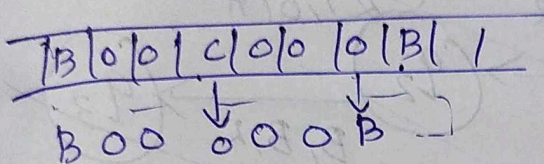 |B|0|0|C|0|0|0|B| |
B 0 0 0 0 0 B